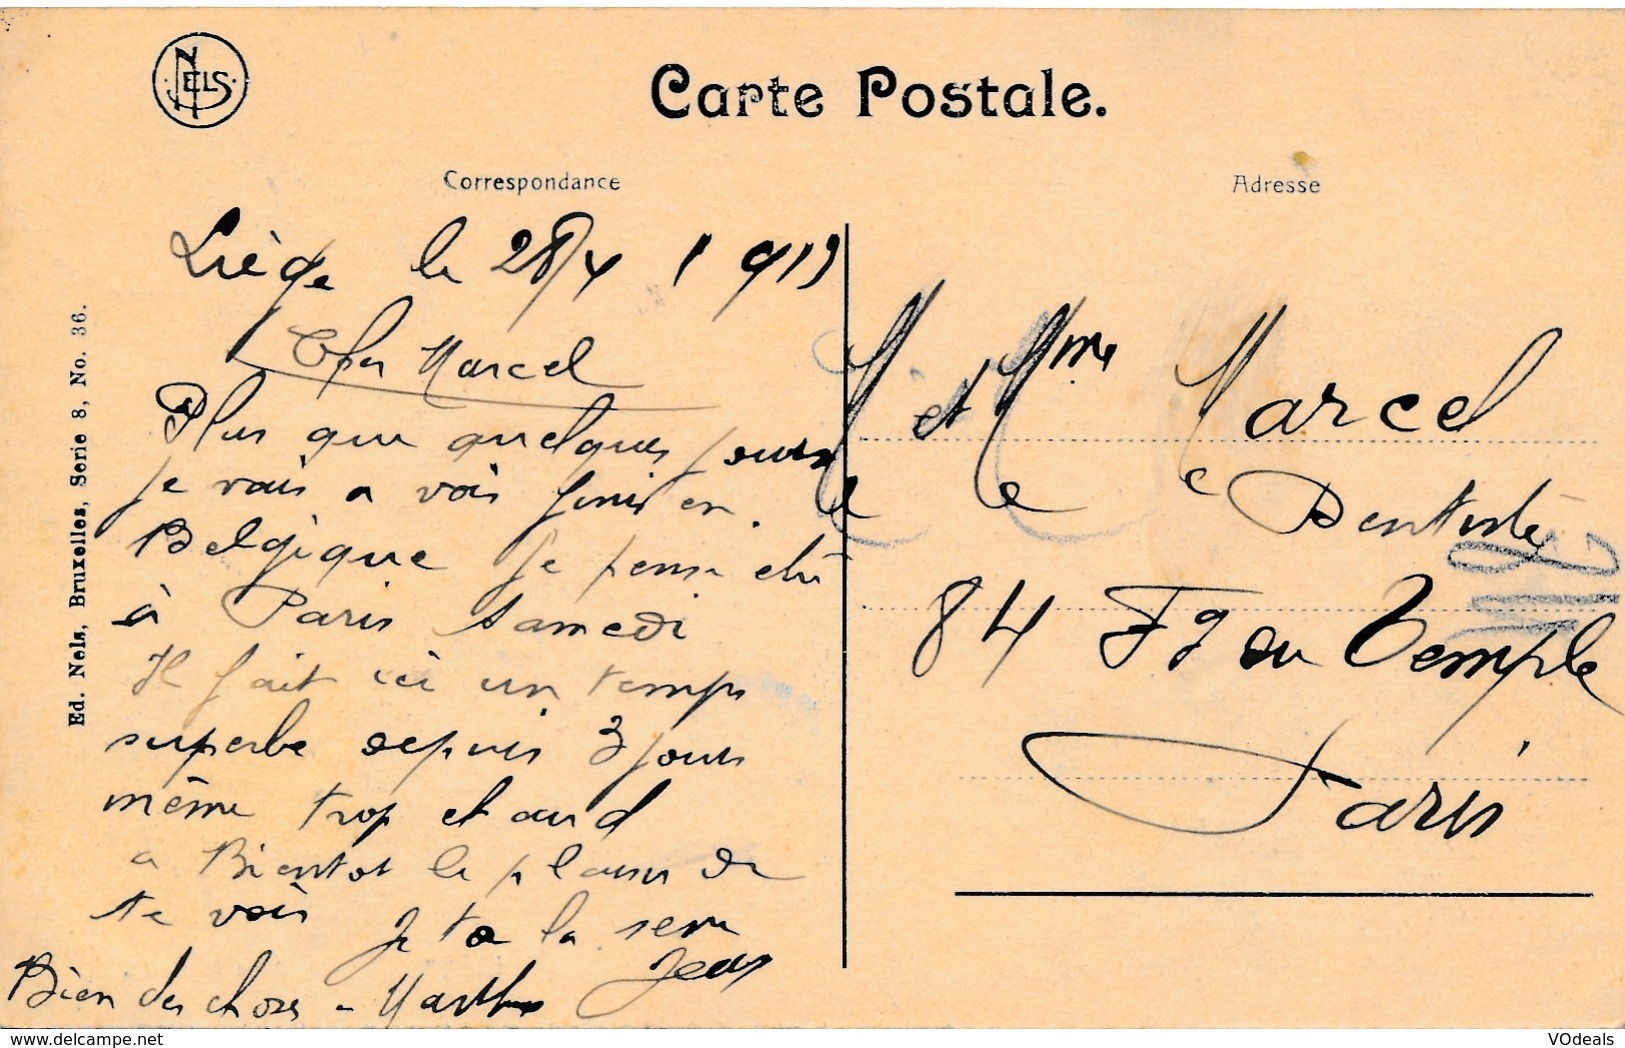 NELS
Carte Postale.
Correspondance
Adresse
Ed. Nels, Bruxelles, Serie 8, No. 36.
Liège le 28/4 1913
Cher Marcel
Plus que quelques jours
je vais a voir finir en
Belgique je pense etre
à Paris Samedi
Il fait ici un temps
superbe depuis 3 jours
même trop chaud
a Bientot le plaisir de
te voir Je te la serre
Jean
Bien des choses a Marthe
M et Mme Marcel
Dentiste
84 Fg du Temple
Paris
VOdeals